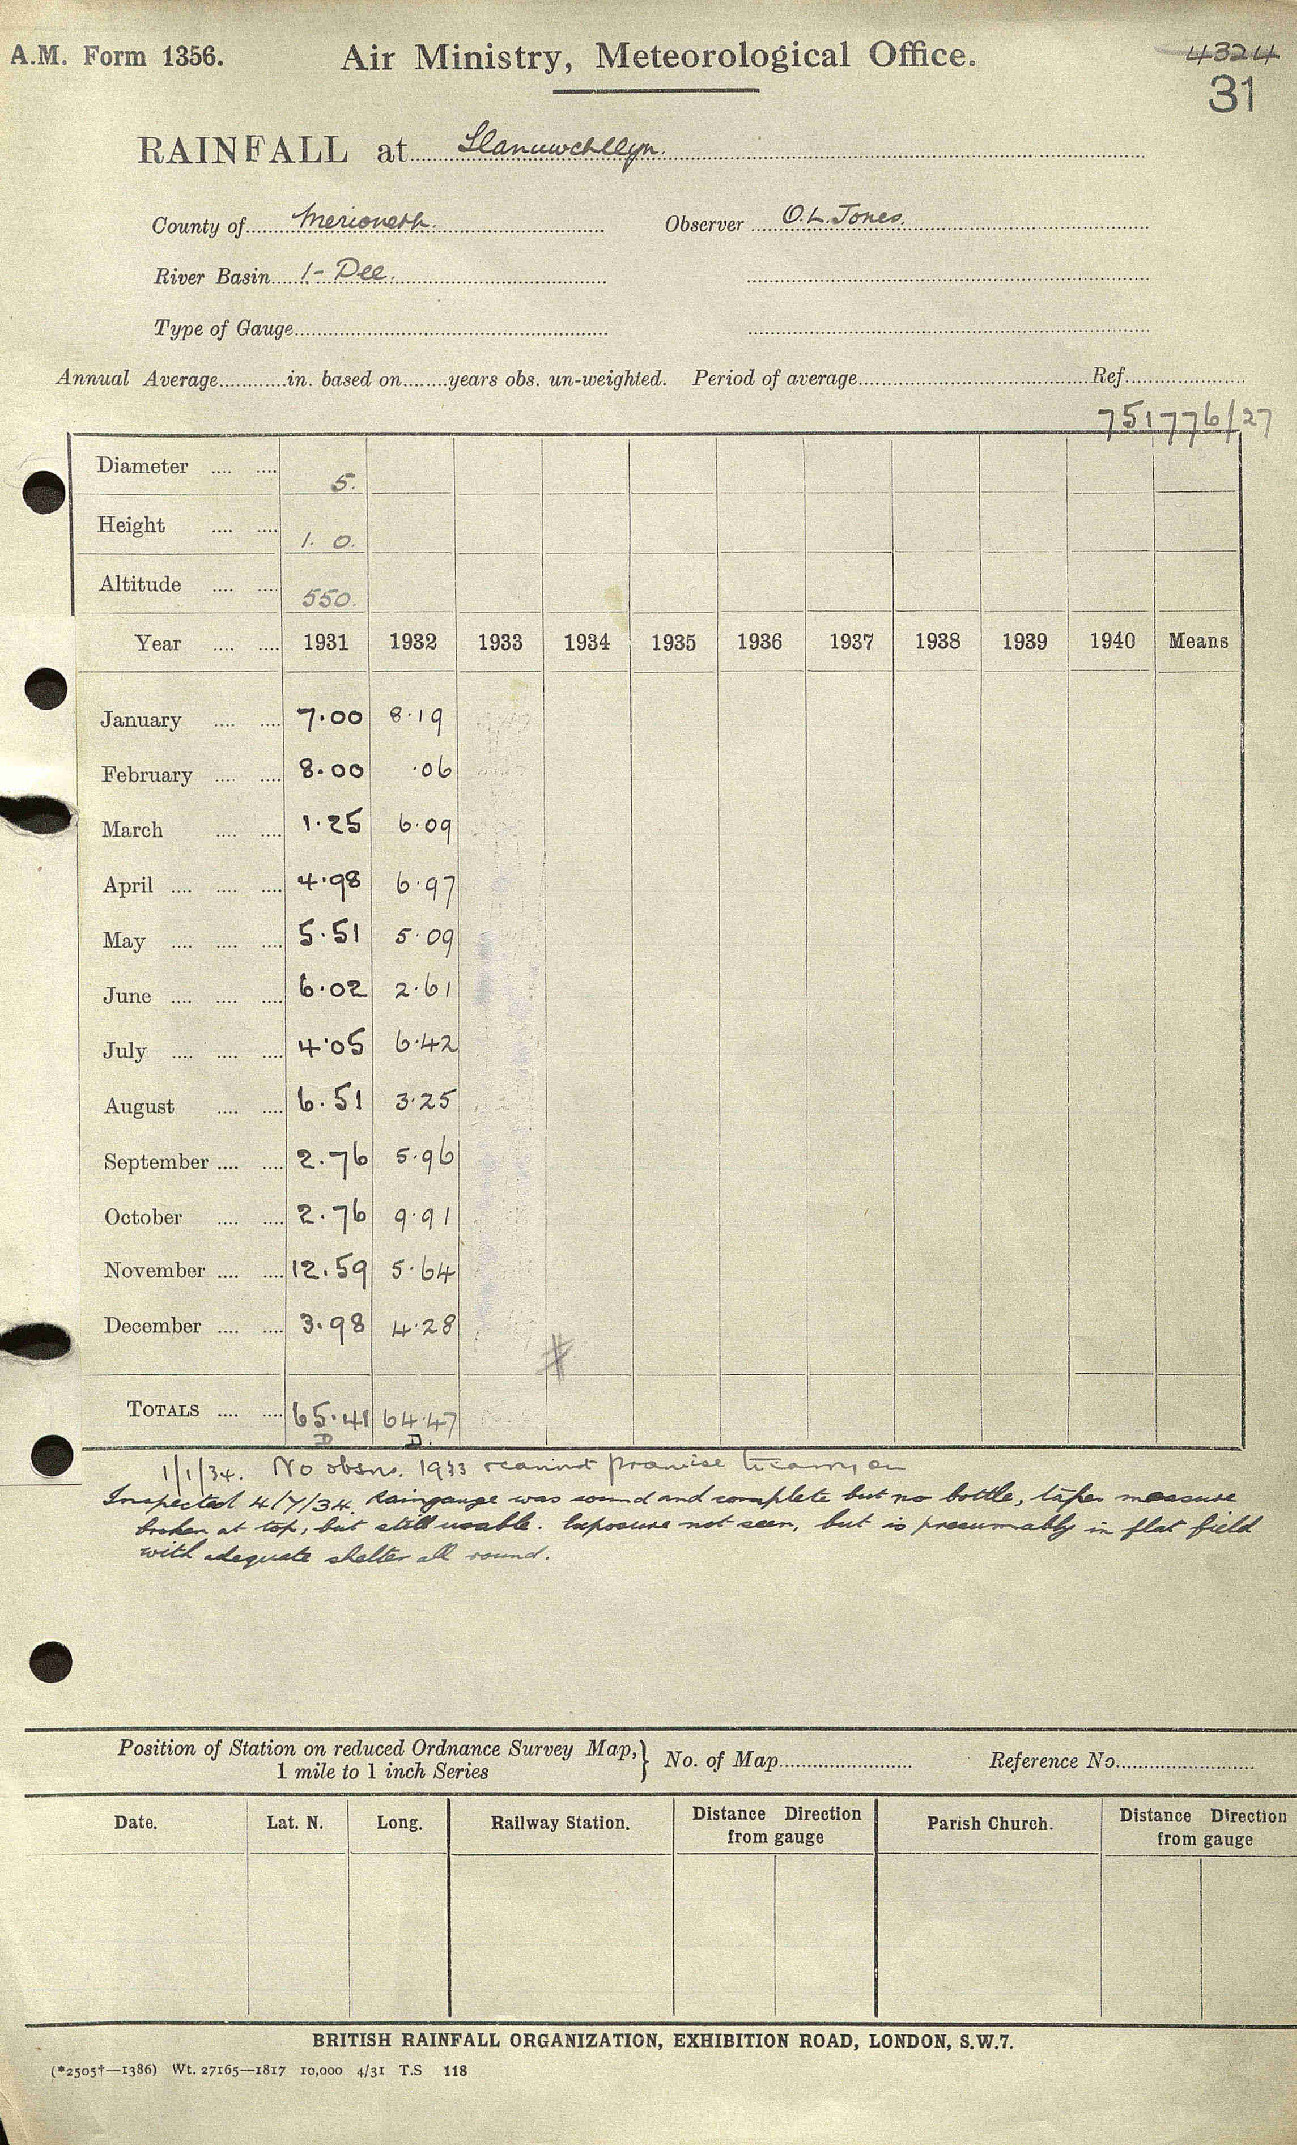 A.M. Form 1356.
Air Ministry, Meteorological Office.
4324
31
RAINFALL at Llanuwchllyn.
County of Merioneth. Observer O.L. Jones.
River Basin 1- Dee.
Type of Gauge
Annual Average in. based on years obs. un-weighted. Period of average Ref.
751776/27
Diameter 5.
Height 1. 0.
Altitude 550.
Year 1931 1932 1933 1934 1935 1936 1937 1938 1939 1940 Means
January 7.00 8.19
February 8.00 .06
March 1.25 6.09
April 4.98 6.97
May 5.51 5.09
June 6.02 2.61
July 4.05 6.42
August 6.51 3.25
September 2.76 5.96
October 2.76 9.91
November 12.59 5.64
December 3.98 4.28
TOTALS 65.41 64.47
D D.
1/1/34. No obsns. 1933 & cannot promise to carry on
Inspected 4/7/34. Raingauge was sound and complete but no bottle, taper measure
broken at top, but still usable. Exposure not seen, but is presumably in flat field
with adequate shelter all round.
Position of Station on reduced Ordnance Survey Map, 1 mile to 1 inch Series } No. of Map Reference No.
Date. Lat. N. Long. Railway Station. Distance Direction from gauge Parish Church. Distance Direction from gauge
BRITISH RAINFALL ORGANIZATION, EXHIBITION ROAD, LONDON, S.W.7.
(*2505†—1386) Wt. 27165—1817 10,000 4/31 T.S 118